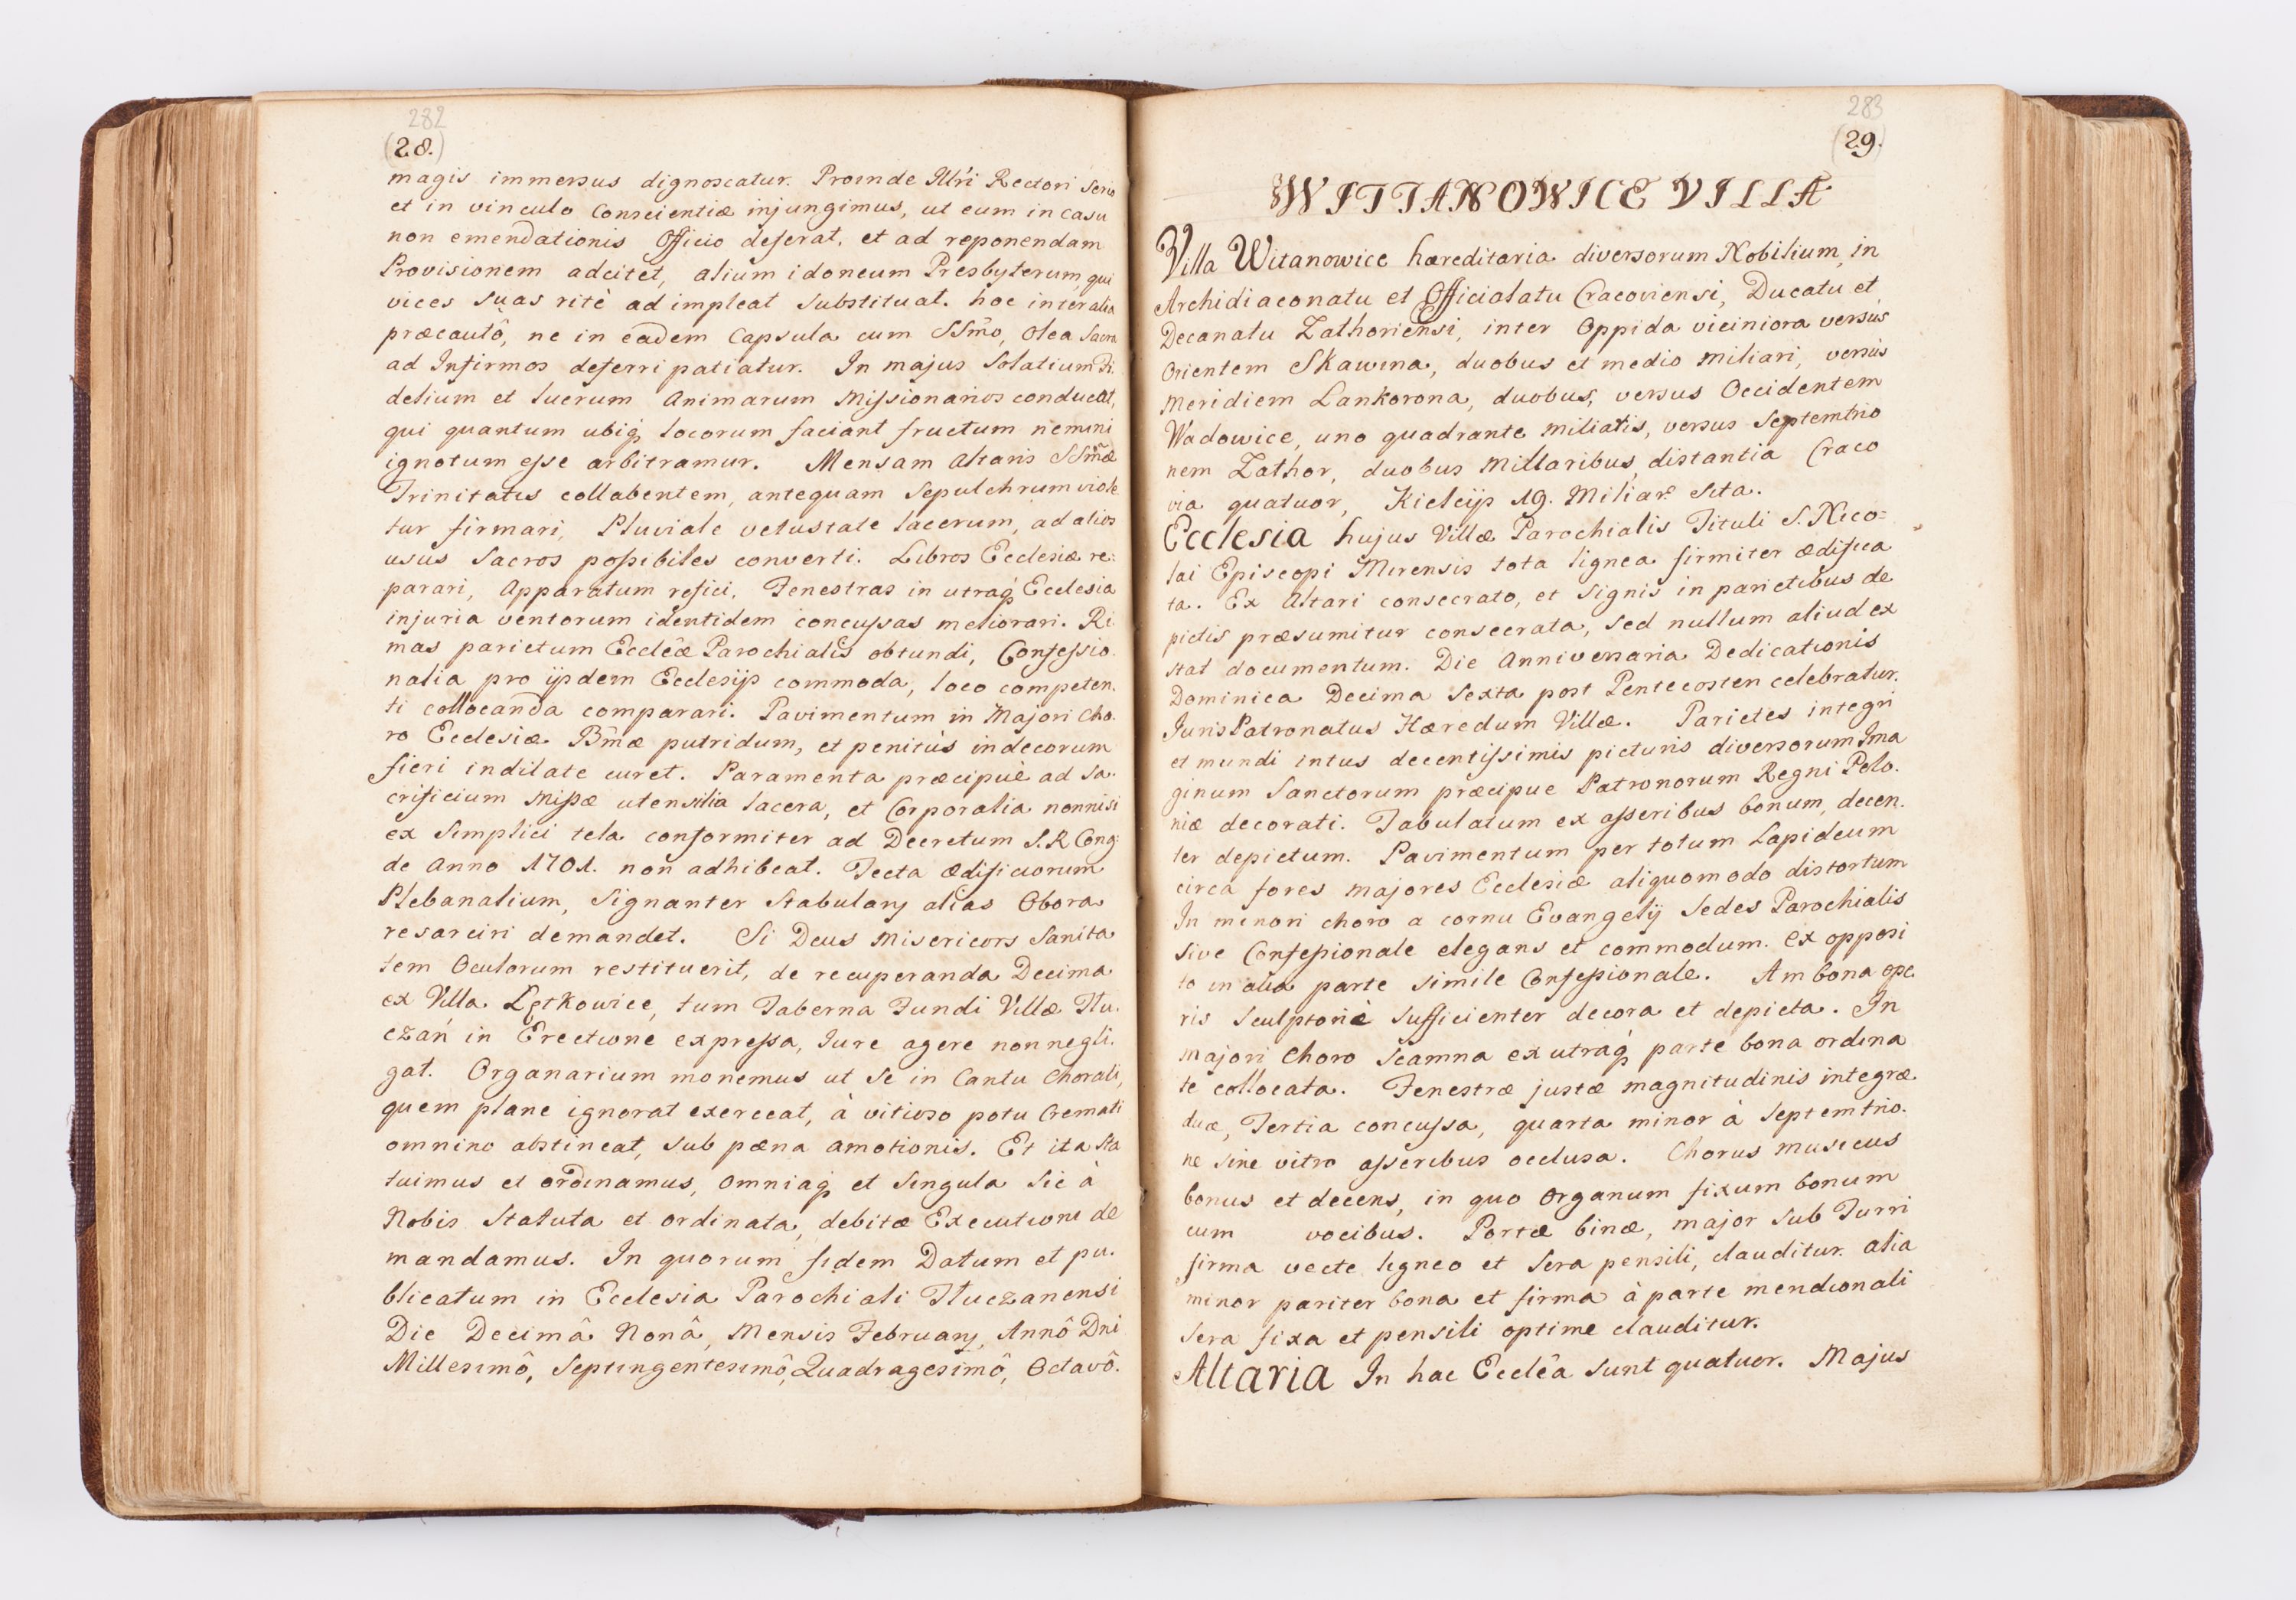 282
(28.)
magis immersus dignoscatur. Proinde Illri Rectori serio
et in vinculo Conscientiæ injungimus, ut eum in casu
non emendationis Officio deferat, et ad reponendam
Provisionem adcitet, alium idoneum Presbyterum, qui
vices suas ritè adimpleat substituat. hoc inter alia
præcautô, ne in eadem Capsula cum SSm̃o, Olea Sacra
ad Infirmos deferri patiatur. In majus Solatium Fi
delium et lucrum Animarum Missionarios conducat,
qui quantum ubiq́ locorum faciant fructum nemini
ignotum esse arbitramur. Mensam Altaris SSm̃æ
Trinitatis collabentem, antequam Sepulchrum viole
tur firmari, Pluviale vetustate lacerum, ad alios
usus Sacros possibiles converti. Libros Ecclesiæ re:
parari, Apparatum refici, Fenestras in utraq́ Ecclesia
injuria ventorum identidem concussas meliorari. Ri
mas parietum Ecclẽæ Parochialis obtundi, Confessio
nalia pro ijsdem Ecclesijs commoda, loco competen.
ti collocanda comparari. Pavimentum in Majori Cho.
ro Ecclesiæ Bm̃æ putridum, et penitùs indecorum
fieri indilate curet. Paramenta præcipuè ad Sa.
crificium Missæ utensilia lacera, et Corporalia nonnisi
ex Simplici tela conformiter ad Decretum S.R Cong:
de Anno 1701. non adhibeat. Tecta Ædificiorum
Plebanalium, Signanter Stabulary alias Obora
resarciri demandet. Si Deus Misericors Sanita
tem Oculorum restituerit, de recuperanda Decima
ex Villa Lętkowice, tum Taberna Fundi Villæ Tłu.
czań in Erectione expressa, Jure agere non negli.
gat. Organarium monemus ut Se in Cantu Chorali,
quem plane ignorat exerceat, à vitioso potu Cremati
omnino abstineat, sub pæna amotionis. Et ita Sta
tuimus et ordinamus, Omniaq́ et Singula Sic à
Nobis Statuta et ordinata, debitæ Executioni de
mandamus. In quorum fidem Datum et pu.
blicatum in Ecclesia Parochiali Tłuczanensi
Die Decimâ Nonâ, Mensis February, Annô Dni
Millesimô, Septingentesimô, Quadragesimô, Octavô.
283
(29.)
WITTANOWICE VILLA
Villa Witanowice hæreditaria diversorum Nobilium, in
Archidiaconatu et Officialatu Cracoviensi, Ducatu et
Decanatu Zathoriensi, inter Oppida viciniora versùs
Orientem Skawina, duobus et medio miliari, versùs
Meridiem Lankorona, duobus, versus Occidentem
Wadowice, uno quadrante miliatis, versus Septemtrio
nem Zathor, duobus Millaribus, distantia Craco
via quatuor, Kielcijs 19. Miliar: Sita.
Ecclesia hujus Villæ Parochialis Tituli S. Nico=
lai Episcopi Mirensis tota lignea firmiter ædifica
ta. Ex Altari consecrato, et Signis in parietibus de
pictis præsumitur consecrata, sed nullum aliud ex
stat documentum. Die Anniversaria Dedicationis
Dominica Decima Sexta post Pentecosten celebratur.
Juris Patronatus Hæredum Villæ. Parietes integri
et mundi intus decentissimis picturis diversorum Ima
ginum Sanctorum præcipue Patronorum Regni Polo.
niæ decorati. Tabulatum ex asseribus bonum, decen.
ter depictum. Pavimentum per totum Lapideum
circa fores majores Ecclesiæ aliquomodo distortum
In minori choro a cornu Evangelij Sedes Parochialis
sive Confessionale elegans et commodum. Ex opposi
to in alia parte simile Confessionale. Ambona ope
ris Sculptoriè sufficienter decora et depicta. In
Majori Choro Scamna ex utraq́ parte bona ordina
te collocata. Fenestræ justæ magnitudinis integræ
duæ, Tertia concussa, quarta minor à Septemtrio.
ne sine vitro asseribus occlusa. Chorus musicus
bonus et decens, in quo Organum fixum bonum
cum vocibus. Portæ binæ, major sub Turri
firma vecte ligneo et Sera pensili, clauditur. alia
minor pariter bona et firma à parte meridionali
Sera fixa et pensili optime clauditur.
Altaria In hac Ecclẽa sunt quatuor. Majus